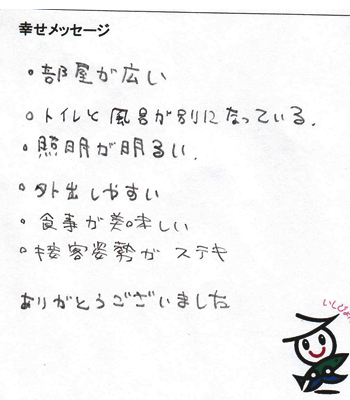 幸せメッセージ
・部屋が広い
・トイレと風呂が別になっている.
・照明が明るい.
・外出しやすい
・食事が美味しい
・接客姿勢がステキ
ありがとうございました